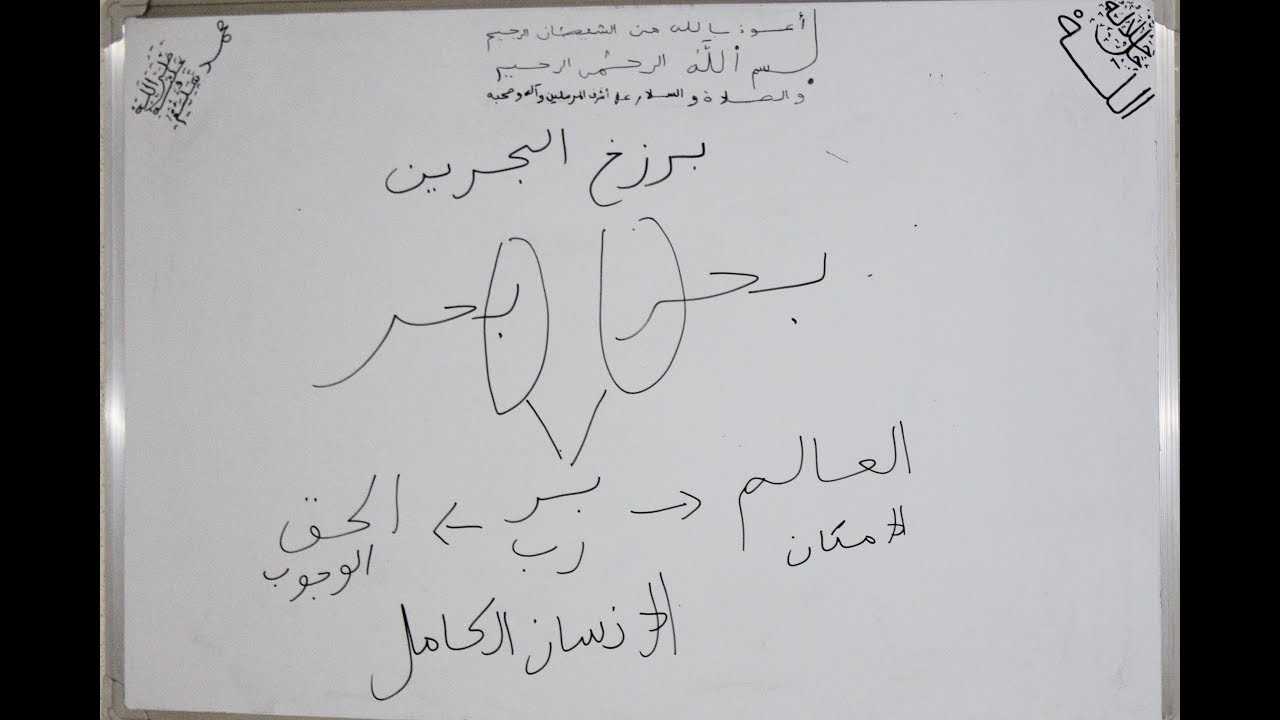 الله
جل جلاله
محمد
صلى الله عليه وسلم
أعوذ بالله من الشيطان الرجيم
بسم الله الرحمن الرحيم
والصلاة والسلام على أشرف المرسلين وآله وصحبه
برزخ البحرين
بحر بحر
العالم → بر ← الحق
الامكان رب الوجوب
الانسان الكامل